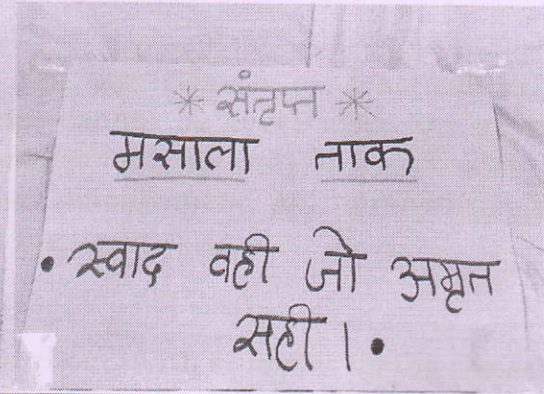 * संतृप्त *
मसाला ताक
• स्वाद वही जो अमृत
सही । •